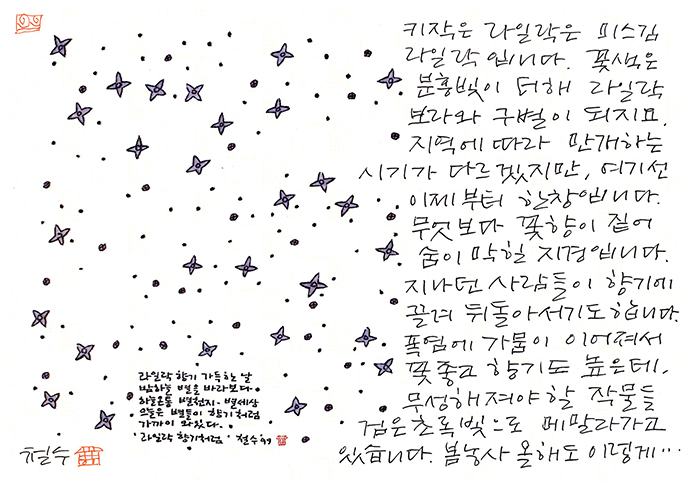 키작은 라일락은 미스김
라일락입니다. 꽃색은
분홍빛이 더해 라일락
보라와 구별이 되지요.
지역에 따라 만개하는
시기가 다르겠지만, 여기선
이제부터 한창입니다.
무엇보다 꽃향이 짙어
숨이 막힐 지경입니다.
지나던 사람들이 향기에
끌려 뒤돌아서기도합니다.
폭염에 가뭄이 이어져서
꽃좋고 향기도 높은데,
무성해져야할 작물들
검은초록빛으로 메말라가고
있습니다. 봄농사 올해도 이렇게…
라일락 향기 가득한 날
밤하늘 별을 바라보다.
하늘온통 별천지·별세상
오늘은 별들이 향기처럼
가까이 와있다.
'라일락 향기처럼' 철수'99
철수